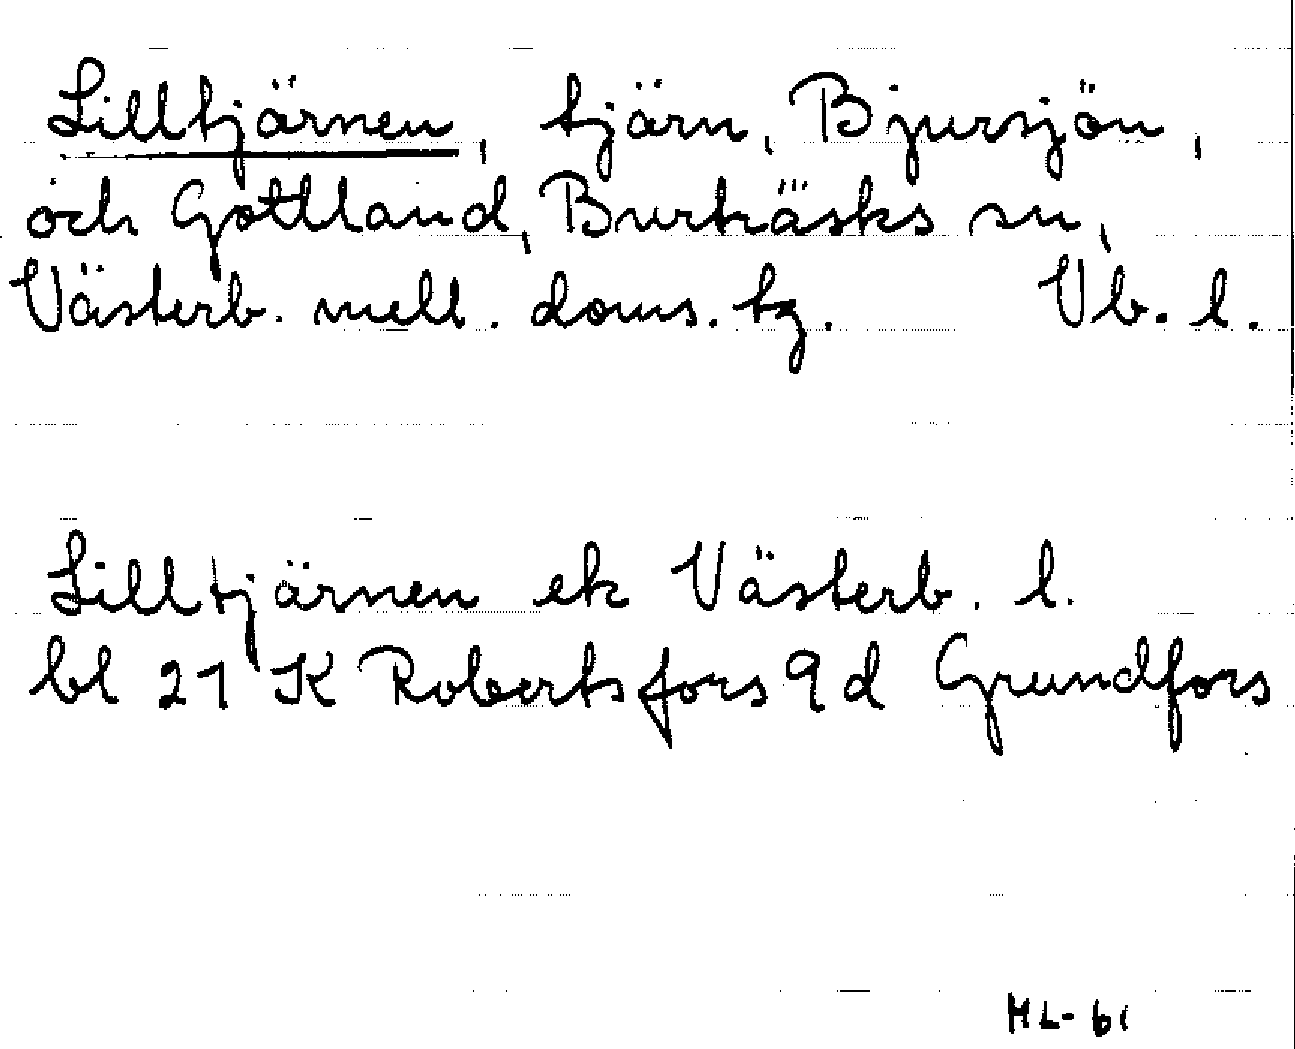 Lilltjärnen, tjärn, Bjursjön,
och Gottland, Burträsks sn,
Västerb. mell. doms. tg. Vb. l.
Lilltjärnen ek Västerb. l.
bl 21 K Robertsfors 9d Grundfors
HL-61